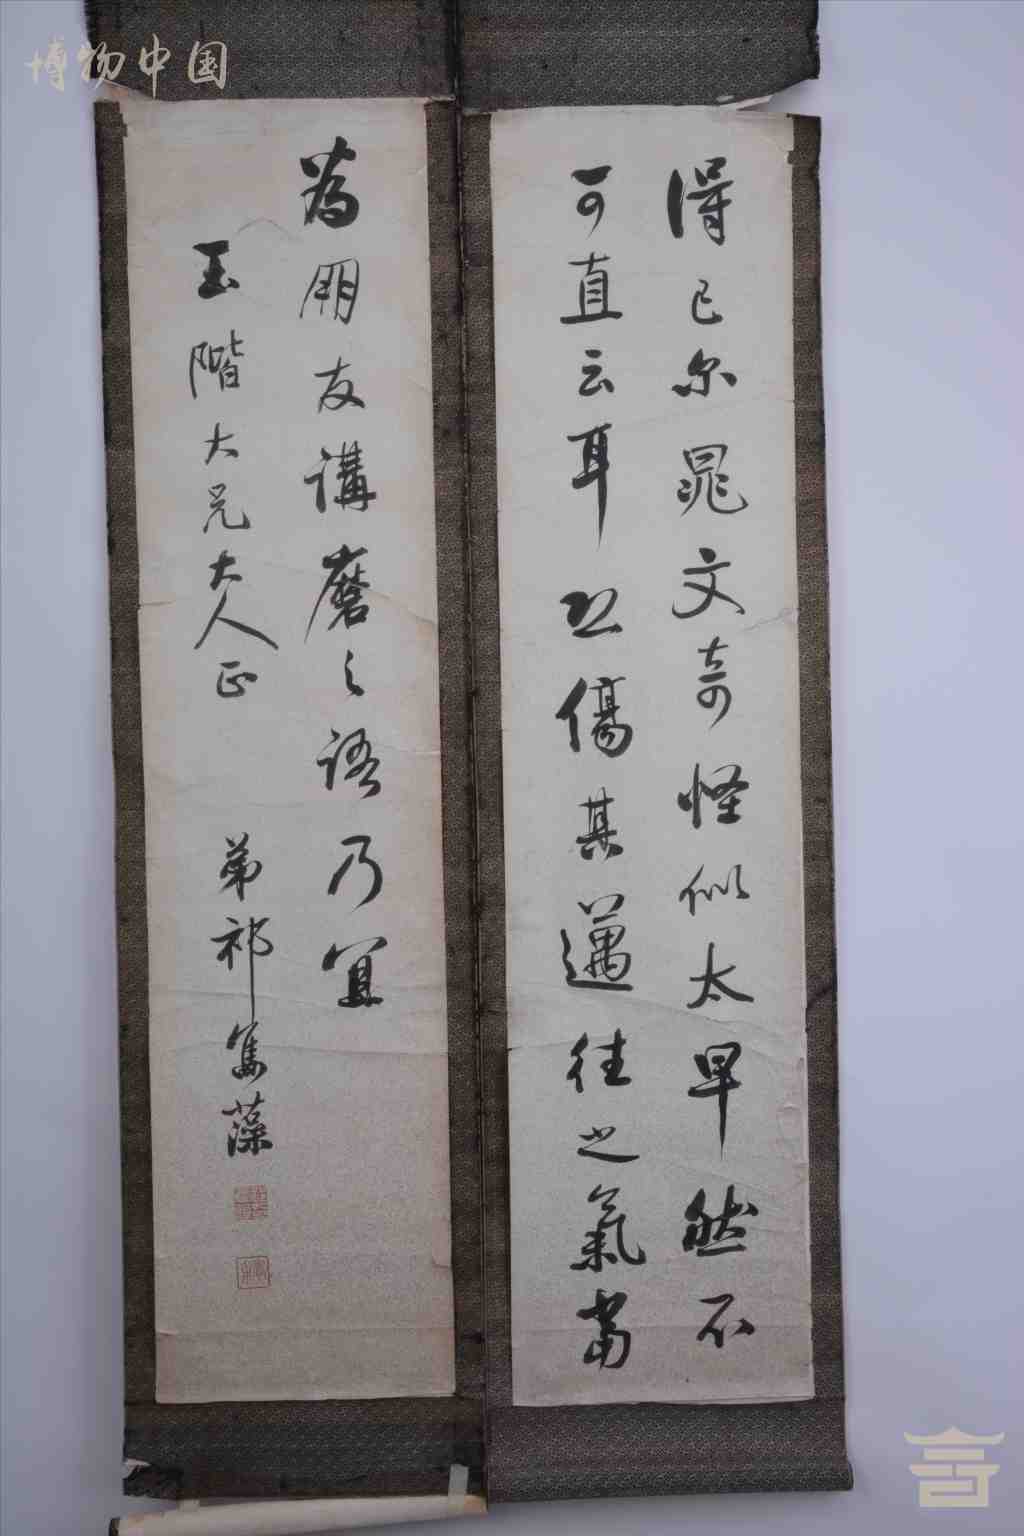 博物中国
得已尔晁文奇怪似太早然不
可直云耳恐傷其邁往之氣當
為朋友講磨之語乃宜
玉階大兄大人正
弟祁寯藻